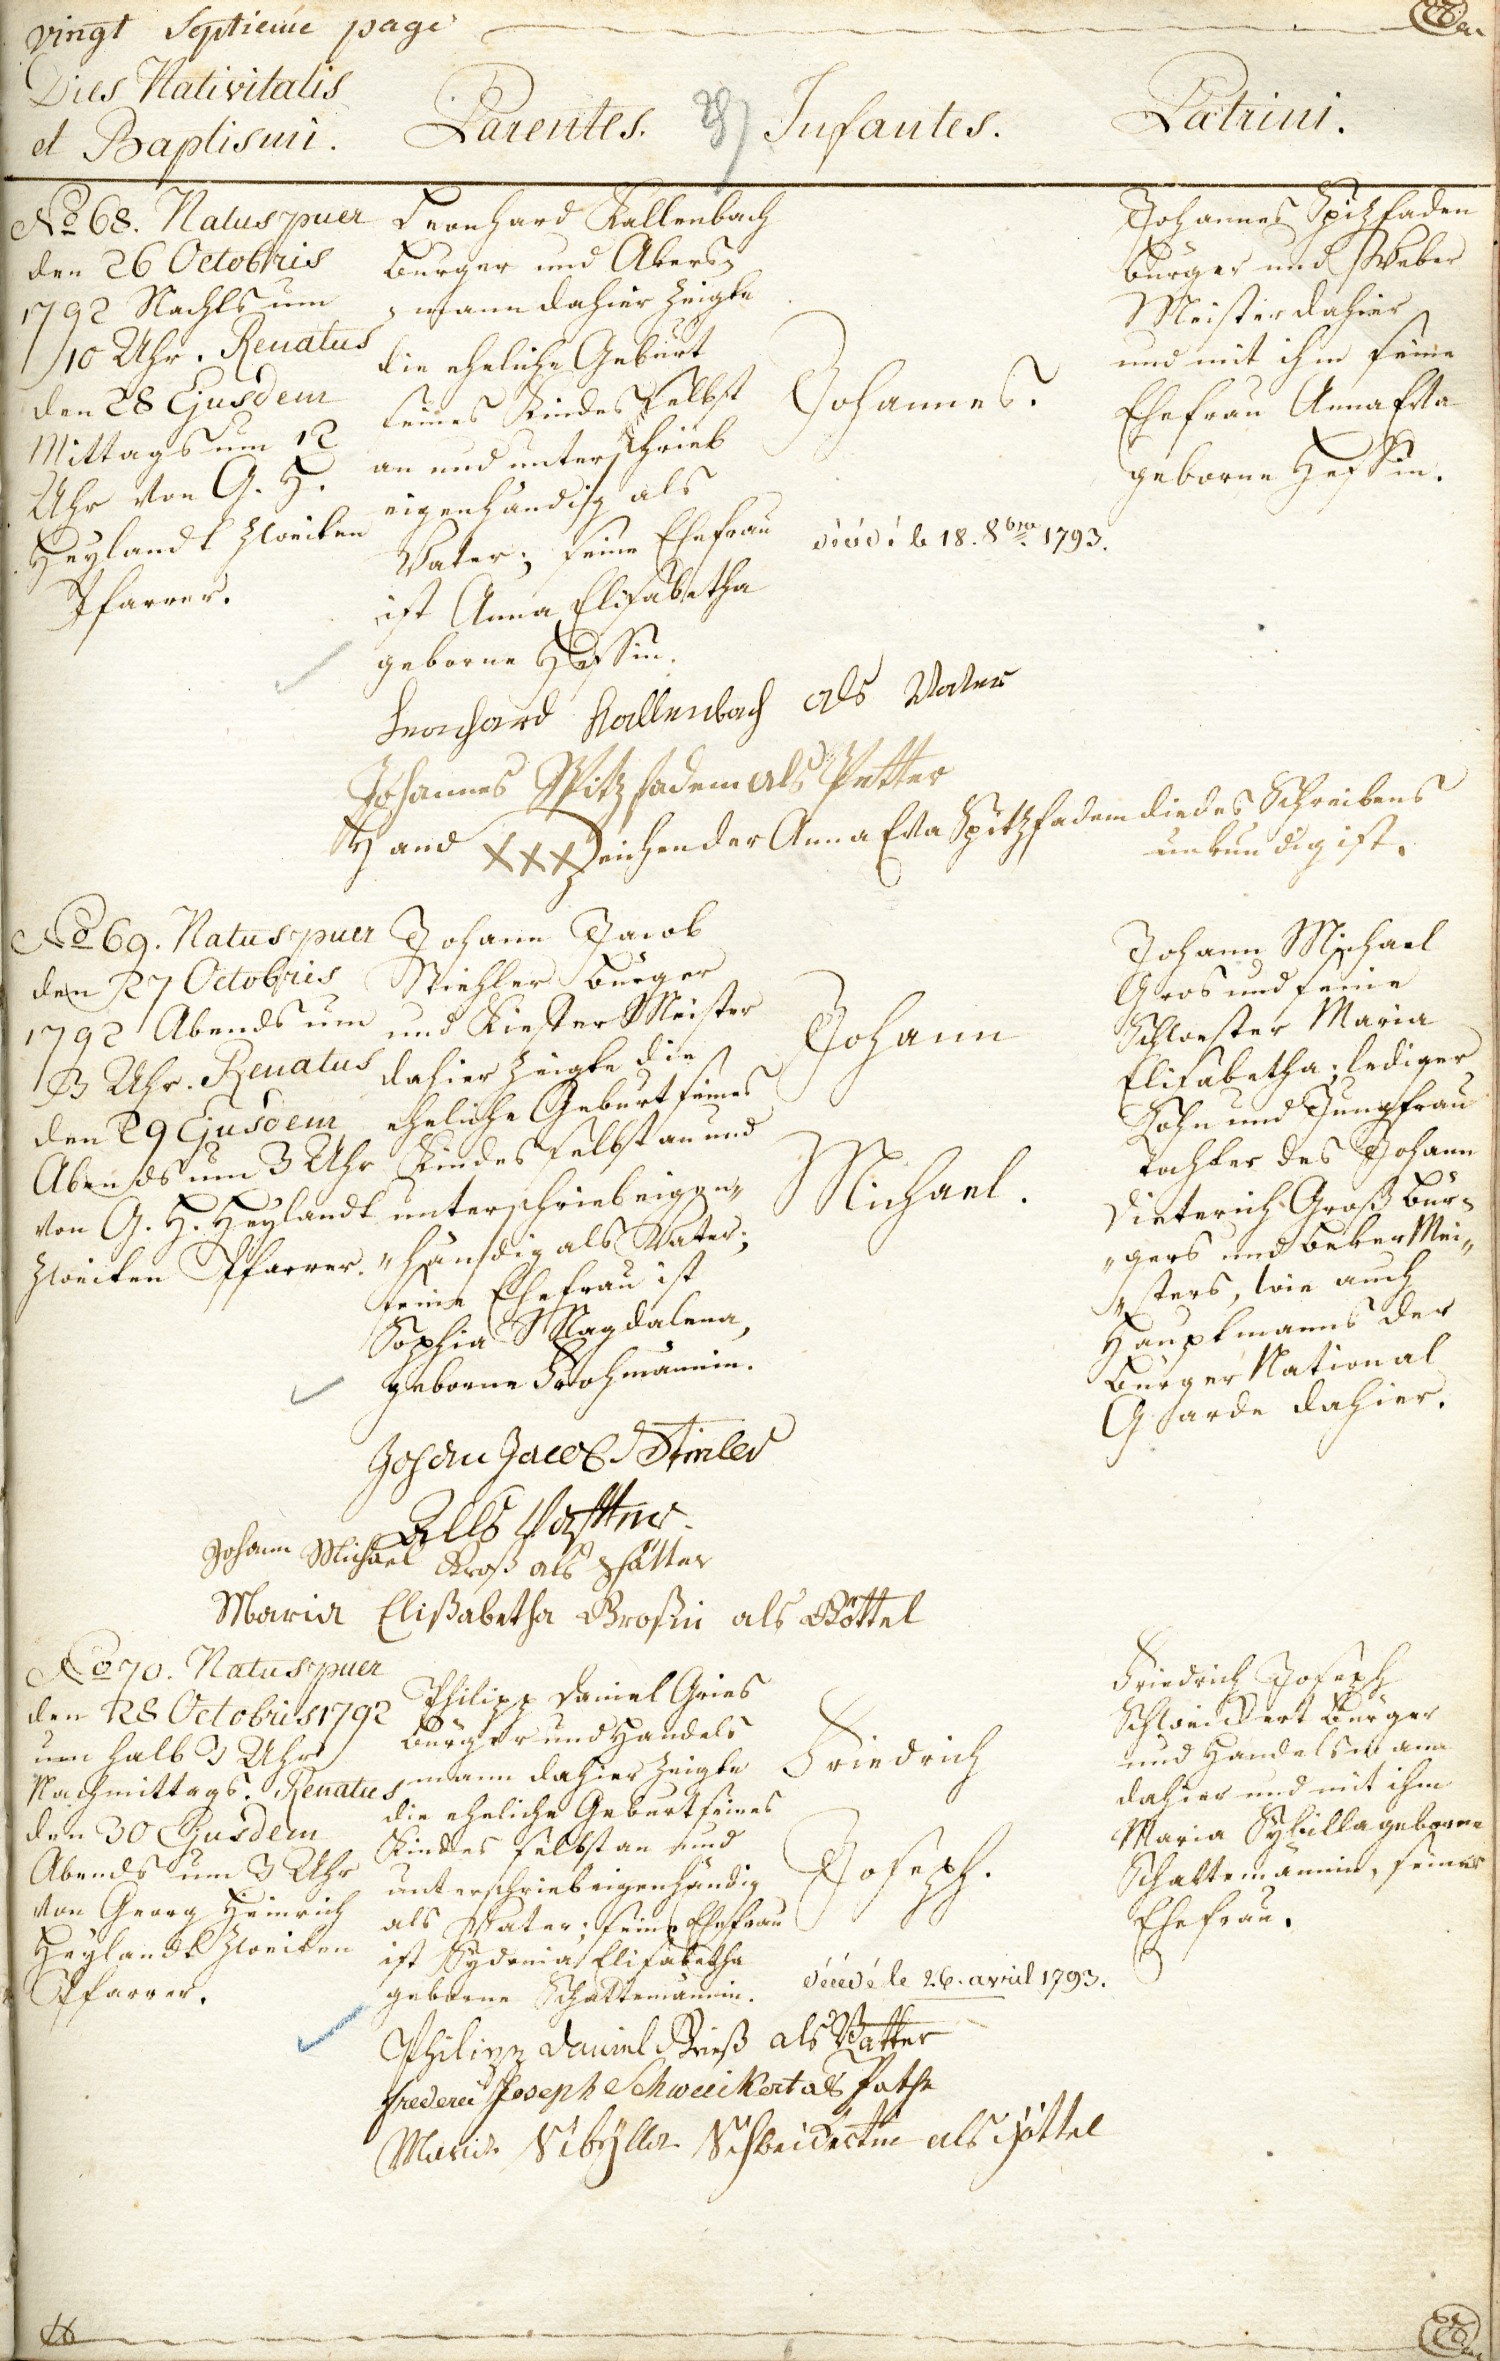 vingt Septieme page
Dies Nativitatis
et Baptismi.
Parentes.
27
Infantes.
Patrini.
No 68. Natus puer
den 26 Octobris
1792 Nachts um
10 Uhr. Renatus
den 28 Ejusdem
Mittags um 12
Uhr von G. H.
Heylandt zweiten
Pfarrer.
Leonhard Kallenbach
Burger und Akers=
=mann dahier zeigte
die eheliche Geburt
seines Kindes selbst
an und unterschrieb
eigenhändig als
Vater; seine Ehefrau
ist Anna Elisabetha
geborne Hessin.
Johannes.
décédé le 18. 8bre 1793.
Johannes Spitzfaden
Burger und Weber
Meister dahier
und mit ihm seine
Ehefrau Anna Eva
geborne Hessin.
Leonhard Kallenbach als Vater
Johannes Spitzfadem als Petter
Hand XXX Zeichen der Anna Eva Spitzfadem die des Schreibens
unkundig ist.
No 69. Natus puer
den 27 Octobris
1792 Abends um
3 Uhr. Renatus
den 29 Ejusdem
Abends um 3 Uhr
von G. H. Heylandt
zweiten Pfarrer.
Johann Jacob
Stiehler Burger
und Kiefer Meister
dahier zeigte die
eheliche Geburt seines
Kindes selbst an und
unterschrieb eigen„
„händig als Vater;
seine Ehefrau ist
Sophia Magdalena,
geborne Frohmännin.
Johann
Michael.
Johann Michael
Gros und seine
Schwester Maria
Elisabetha; lediger
Sohn und Jungfrau
Tochter des Johann
Dieterich Groß Bür=
„gers und Beker Mei„
„sters, wie auch
Hauptmanns der
Burger National
Garde dahier.
Johan Jacob Stieler
Alls Vatter
Johann Michael Groß als Pfätter
Maria Elißabetha Großin als Göttel
No 70. Natus puer
den 28 Octobris 1792
um halb 3 Uhr
Nachmittags. Renatus
den 30 Ejusdem
Abends um 3 Uhr
von Georg Heinrich
Heylandt zweiten
Pfarrer.
Philipp Daniel Gries
Bürger und Handels
mann dahier zeigte
die eheliche Geburt seines
Kindes selbst an und
unterschrieb eigenhändig
als Vater; seine Ehefrau
ist Sydonia Elisabetha
geborne Schattemännin.
Friedrich
Joseph.
décedé le 26. avril 1793.
Friedrich Joseph
Schweickert Bürger
und Handelsmann
dahier und mit ihm
Maria Sybilla geborne
Schattemännin, seiner
Ehefrau.
Philipp Daniel Grieß als Vatter
frederic Joseph Schweickert als Pathe
Maria Sibÿlla Schweickertin als Göttel